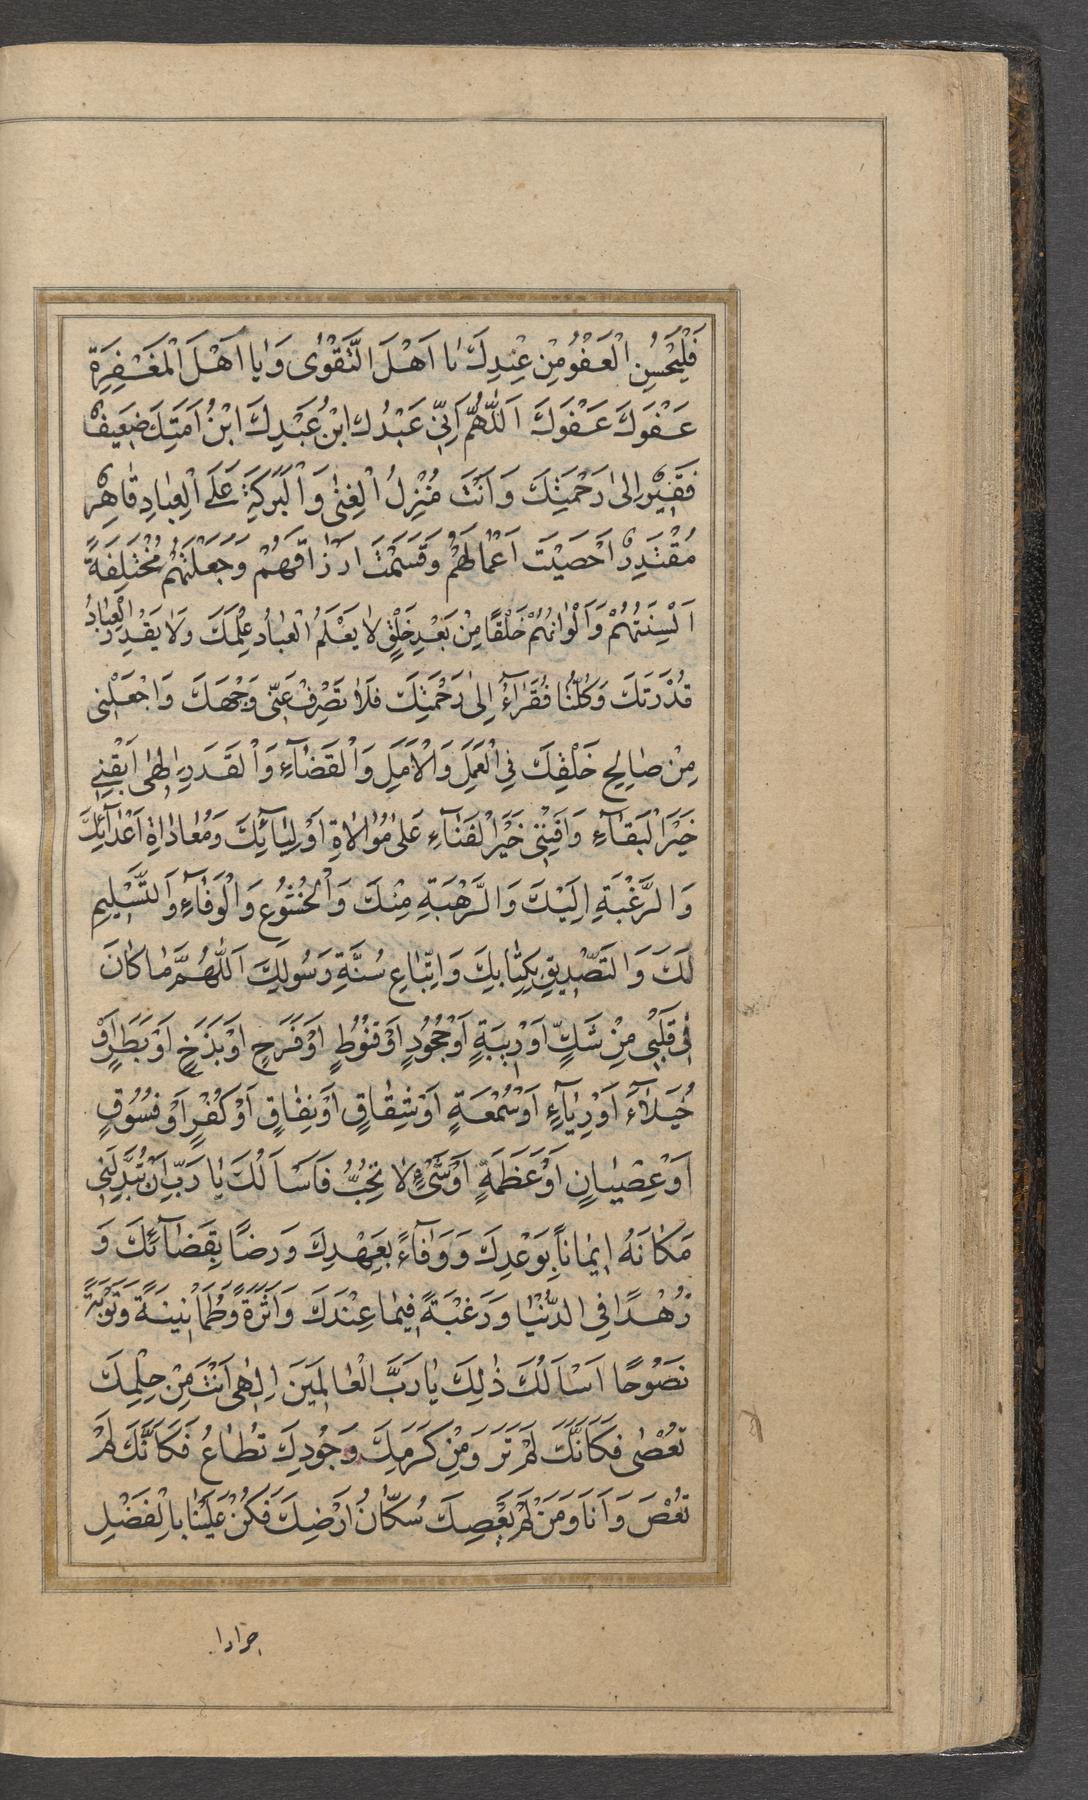 فَلْيَحْسُنِ الْعَفْوُ مِنْ عِنْدِكَ يٰا اَهْلَ التَّقْوٰى وَيٰا اَهْلَ الْمَغْفِرَةِ
عَفْوَكَ عَفْوَكَ اَللّٰهُمَّ اِنّٖى عَبْدُكَ ابْنُ عَبْدِكَ ابْنُ اَمَتِكَ ضَعِيفٌ
فَقِيرٌ اِلىٰ رَحْمَتِكَ وَاَنْتَ مُنْزِلُ الْغِنٰى وَالْبَرَكَةِ عَلَى الْعِبٰادِ قٰاهِرٌ
مُقْتَدِرٌ اَحْصَيْتَ اَعْمٰالَهُمْ وَقَسَمْتَ اَرْزٰاقَهُمْ وَجَعَلْتَهُمْ مُخْتَلِفَةً
اَلْسِنَتُهُمْ وَاَلْوٰانُهُمْ خَلْقًا مِنْ بَعْدِ خَلْقٍ لٰا يَعْلَمُ الْعِبٰادُ عِلْمَكَ وَلٰا يَقْدِرُ الْعِبٰادُ
قُدْرَتَكَ وَكُلُّنٰا فُقَرٰآءُ اِلىٰ رَحْمَتِكَ فَلٰا تَصْرِفْ عَنّٖى وَجْهَكَ وَاجْعَلْنٖى
مِنْ صٰالِحِ خَلْقِكَ فِى الْعَمَلِ وَالْاَمَلِ وَالْقَضٰآءِ وَالْقَدَرِ اِلٰهٖى اَبْقِنٖى
خَيْرَ الْبَقٰآءِ وَافْنِنٖى خَيْرَ الْفَنٰآءِ عَلىٰ مُوٰالٰاةِ اَوْلِيٰآئِكَ وَمُعٰادٰاةِ اَعْدٰآئِكَ
وَالرَّغْبَةِ اِلَيْكَ وَالرَّهْبَةِ مِنْكَ وَالْخُشُوعِ وَالْوَفٰآءِ وَالتَّسْلِيمِ
لَكَ وَالتَّصْدِيقِ بِكِتٰابِكَ وَاتِّبٰاعِ سُنَّةِ رَسُولِكَ اَللّٰهُمَّ مٰا كٰانَ
فٖى قَلْبٖى مِنْ شَكٍّ اَوْ رِيبَةٍ اَوْ جُحُودٍ اَوْ قُنُوطٍ اَوْ فَرَحٍ اَوْ بَذَخٍ اَوْ بَطَرٍ اَوْ
خُيَلٰآءَ اَوْ رِيٰآءٍ اَوْ سُمْعَةٍ اَوْ شِقٰاقٍ اَوْ نِفٰاقٍ اَوْ كُفْرٍ اَوْ فُسُوقٍ
اَوْ عِصْيٰانٍ اَوْ عَظَمَةٍ اَوْ شَىْءٍ لٰا تُحِبُّ فَاَسْاَلُكَ يٰا رَبِّ اَنْ تُبَدِّلَنٖى
مَكٰانَهُ اِيمٰاناً بِوَعْدِكَ وَوَفٰآءً بِعَهْدِكَ وَرِضًا بِقَضٰآئِكَ وَ
زُهْدًا فِى الدُّنْيٰا وَرَغْبَةً فِيمٰا عِنْدَكَ وَاَثَرَةً وَطُمَاْنِينَةً وَتَوْبَةً
نَصُوحًا اَسْاَلُكَ ذٰلِكَ يٰا رَبَّ الْعٰالَمِينَ اِلٰهٖى اَنْتَ مِنْ حِلْمِكَ
تُعْصٰى فَكَاَنَّكَ لَمْ تَرَ وَمِنْ كَرَمِكَ وَجُودِكَ تُطٰاعُ فَكَاَنَّكَ لَمْ
تُعْصَ وَاَنَا وَمَنْ لَمْ يَعْصِكَ سُكّٰانُ اَرْضِكَ فَكُنْ عَلَيْنٰا بِالْفَضْلِ